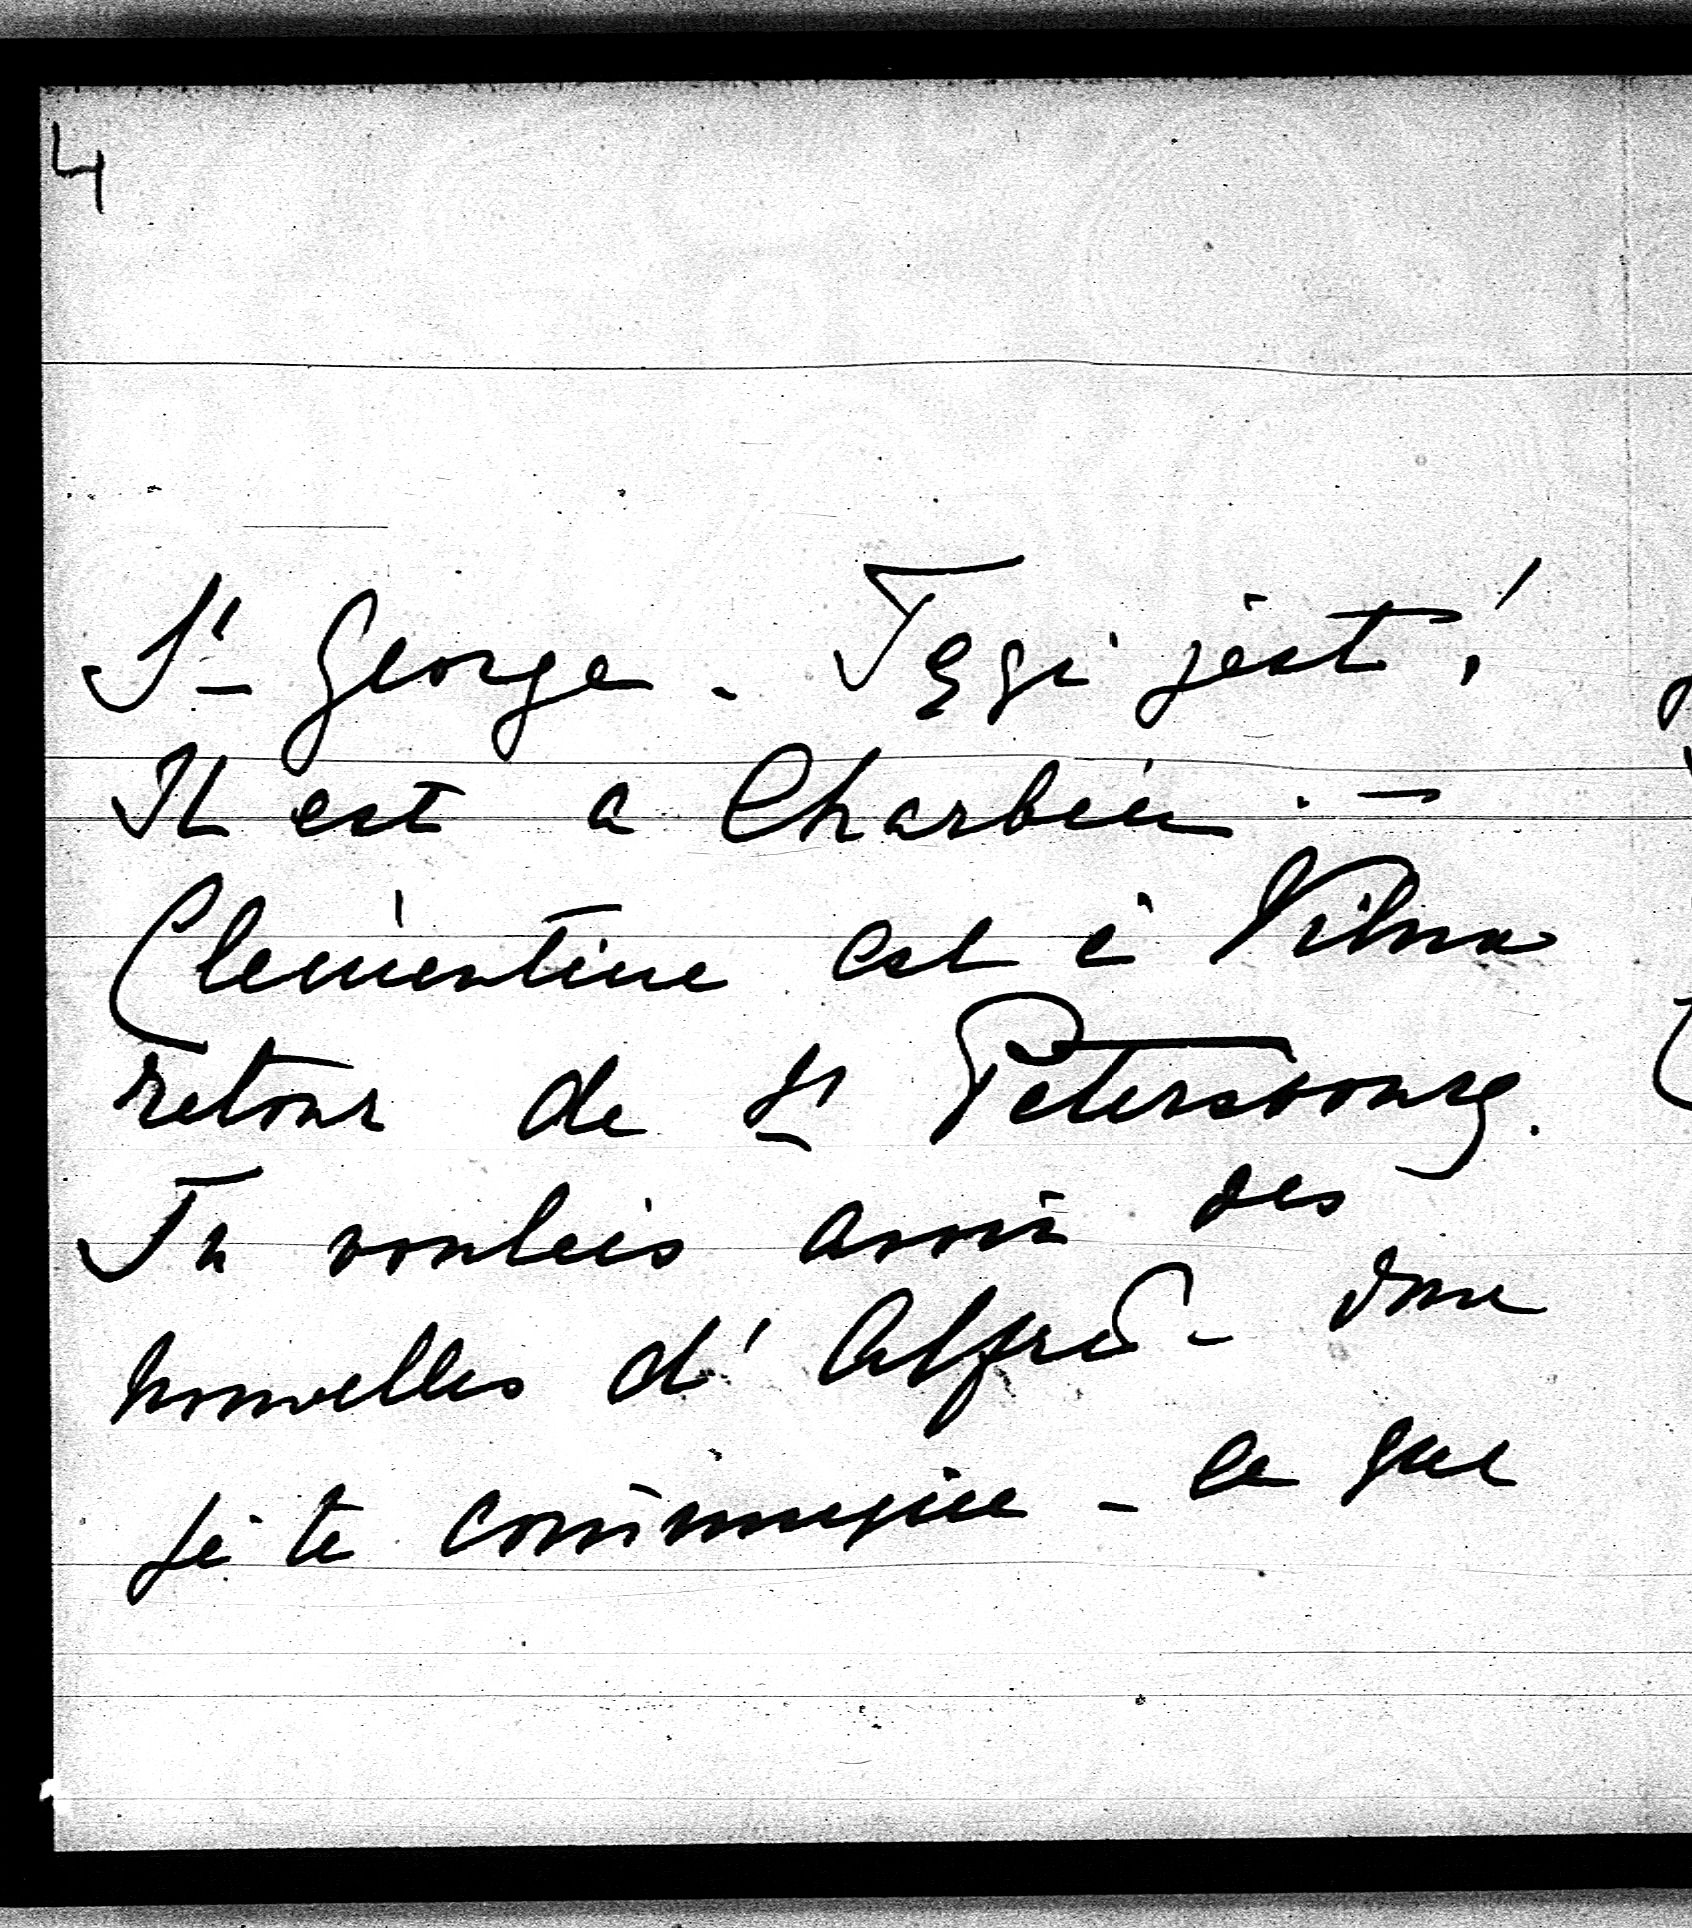 4
St George. Tęgi jest!
Il est a Charbin. —
Clémentine est à Vilna
retour de St Petersbourg.
Tu voulais avoir des
nouvelles d'Alfred - donc
je te communique - ce que